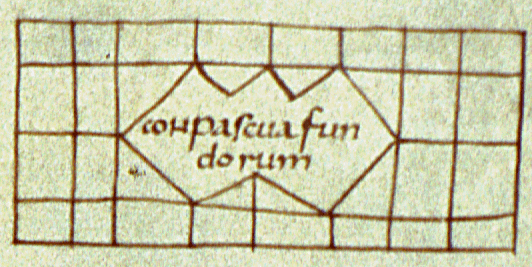 conpascua fun
dorum